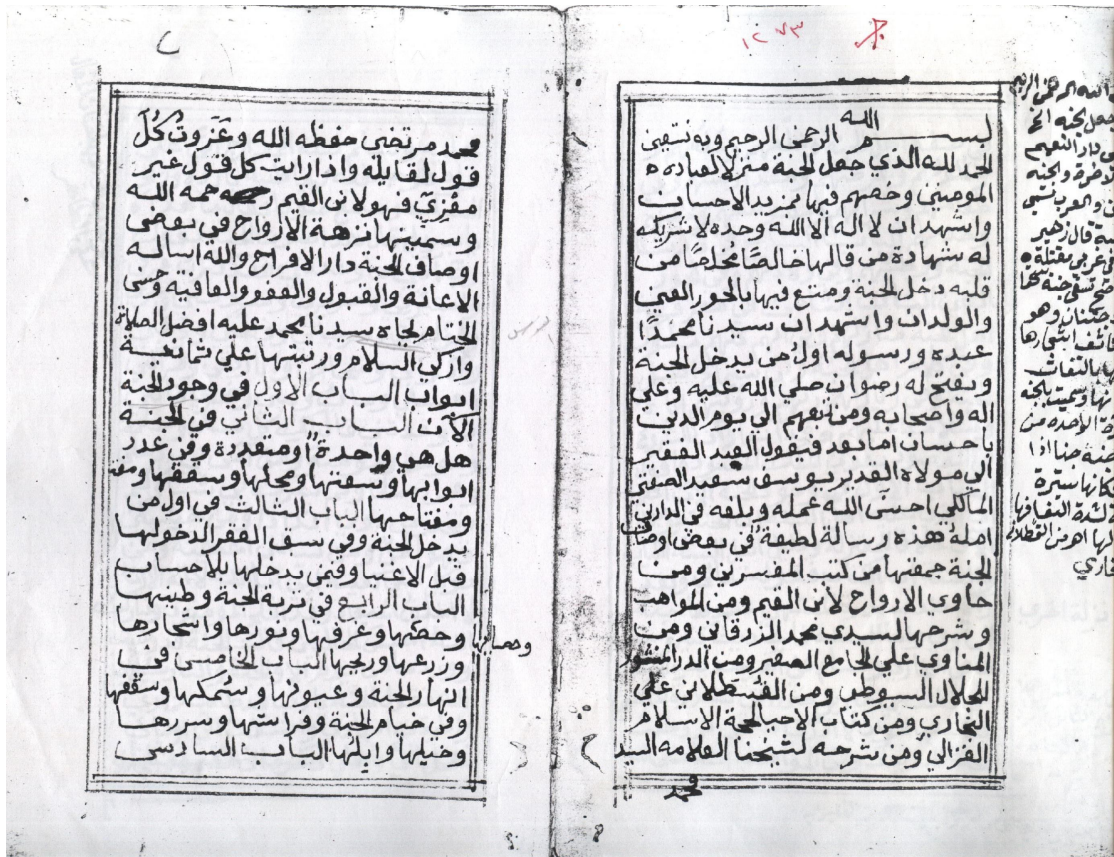 ١٢٧٣
بسم الله الرحمن الرحيم وبه نستعين
الحمد لله الذي جعل الجنة منزلا لعباده
المومنين وخصهم فيها بمزيد الاحسان
واشهد ان لا اله الا الله وحده لا شريك
له شهادة من قالها خالصًا مخلصًا من
قلبه دخل الجنة ومتع فيها بالحور العين
والولدان واشهد ان سيدنا محمدًا
عبده ورسوله اول من يدخل الجنة
ويفتح له رضوان صلي الله عليه وعلي
اله واصحابه ومن تبعهم الي يوم الدين
باحسان اما بعد فيقول العبد الفقير
الي مولاه القدير يوسف سعيد الصفتي
المالكي احسن الله عمله وبلغه في الدارين
امله هذه رسالة لطيفة في بعض اوصاف
الجنة جمعتها من كتب المفسرين ومن
حاوي الارواح لابن القيم ومن المواهب
وشرحها لسيدي محمد الزرقاني ومن
المناوي علي الجامع الصغير ومن الدر المنثور
للجلال السيوطي ومن القسطلاني علي
البخاري ومن كتاب الاحيا لحجة الاسلام
الغزالي ومن شرحه لشيخنا العلامه السيد
محمد
الله الرحمن الرحيم
دار النعيم
والعرب تسمي
قال زهير
في غربي مقتلة
تسقي جنة سحقا
جنان وهو
اشجارها
بالتفاف
وسميت بالجنة
الواحدة من
جنه جنا اذا
فكانها سترة
لشدة التفافها
القسطلاني
بخاري
٢
محمد مرتضي حفظه الله وعزوت كل
قول لقايله واذا رايت كل قول غير
معزي فهو لابن القيم رحمه الله
وسميتها نزهة الارواح في بعض
اوصاف الجنة دار الافراح والله اساله
الاعانة والقبول والعفو والعافية وحسن
الختام بجاه سيدنا محمد عليه افضل الصلاة
وازكي السلام ورتبتها علي ثمانية
ابواب الباب الاول في وجود الجنة
الآن الباب الثاني في الجنة
هل هي واحدة او متعددة وفي عدد
ابوابها وسعتها ومحلها وسقفها
ومفتاحها الباب الثالث في اول من
يدخل الجنة وفي سبق الفقرا لدخولها
قبل الاغنيا وفيمن يدخلها بلا حساب
الباب الرابع في تربة الجنة وطينتها
وحصبايها
وغرفها ونورها واشجارها
وزرعها وريحها الباب الخامس في
انهار الجنة وعيونها وسمكها وسقفها
وفي خيام الجنة وفراشها وسررها
وخيلها وابلها الباب السادس